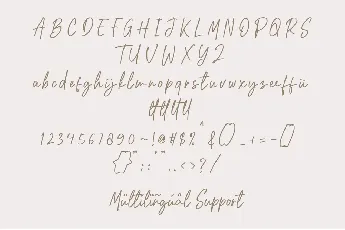 ABCDEFGHIJKLMNOPQRS
TUVWXYZ
abcdefghijklmnopqrstuvwxyz
1234567890~!@#$%^&()_+=-[]
{}":;'",.<>?/
Mültilingúál Support